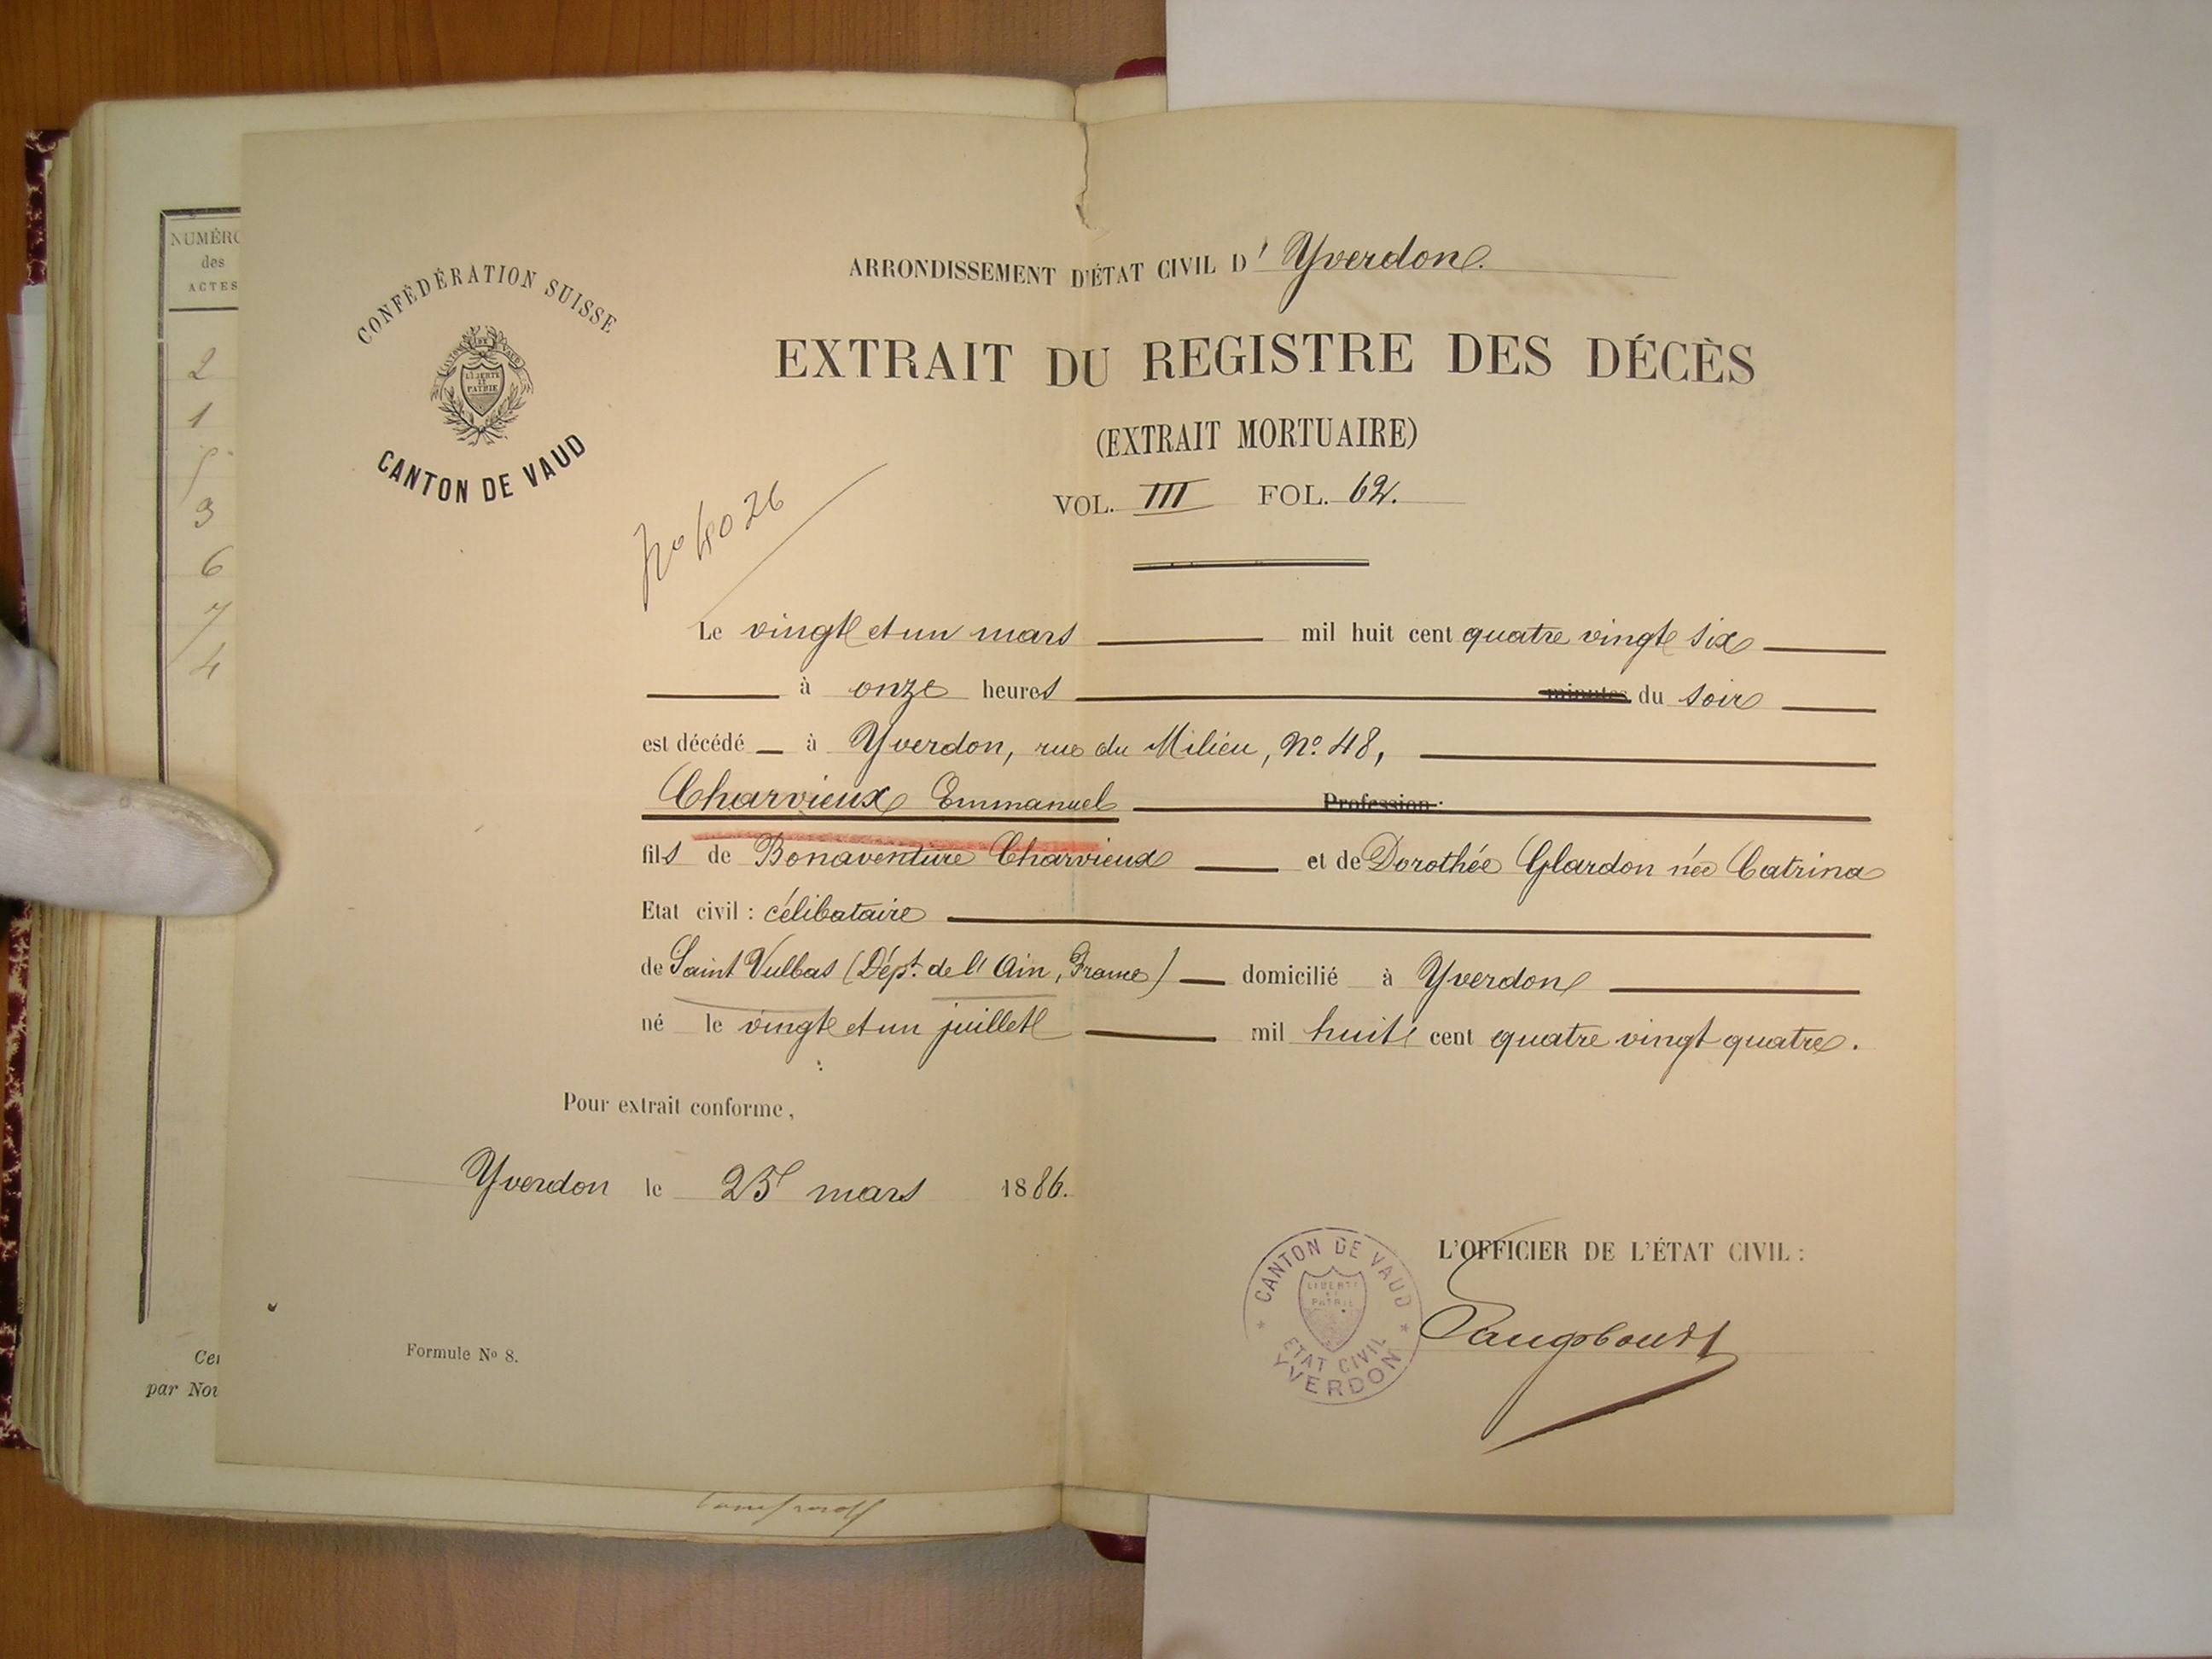 NUMÉRO
des
ACTES
2
1
5
3
6
7
4
CONFÉDÉRATION SUISSE
LIBERTÉ
ET
PATRIE
CANTON DE VAUD
ARRONDISSEMENT D'ÉTAT CIVIL D' Yverdon.
EXTRAIT DU REGISTRE DES DÉCÈS
(EXTRAIT MORTUAIRE)
VOL. III FOL. 62.
No 4026
Le vingt et un mars mil huit cent quatre vingt six
à onze heures minutes du soir
est décédé à Yverdon, rue du Milieu, No. 48,
Charvieux Emmanuel Profession:
fils de Bonaventure Charvieux et de Dorothée Glardon née Catrina
Etat civil : célibataire
de Saint Vulbas (Dépt. de l'Ain, France) domicilié à Yverdon
né le vingt et un juillet mil huit cent quatre vingt quatre.
Pour extrait conforme,
Yverdon le 25 mars 1886.
L'OFFICIER DE L'ÉTAT CIVIL :
CANTON DE VAUD
LIBERTÉ
ET
PATRIE
ETAT CIVIL
YVERDON
Formule No 8.
Cer
par Nou